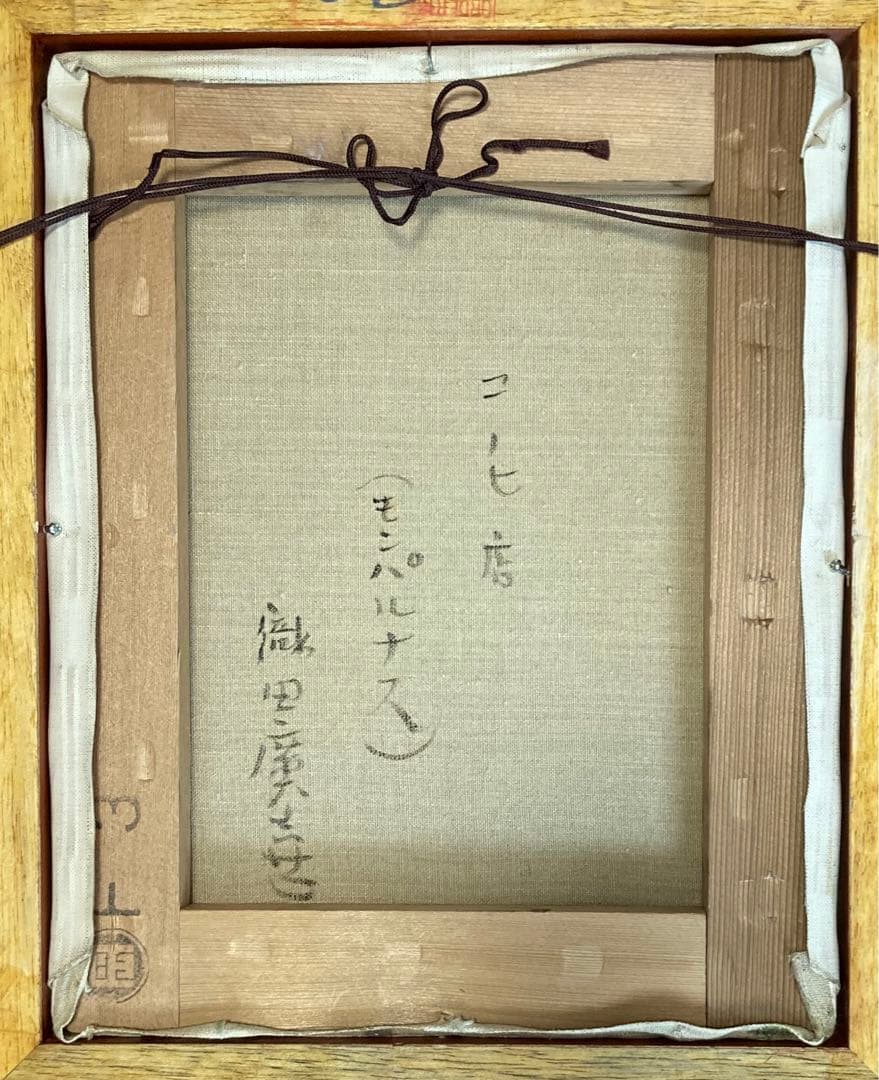 コーヒ店
(モンパルナス)
織田廣喜
F3